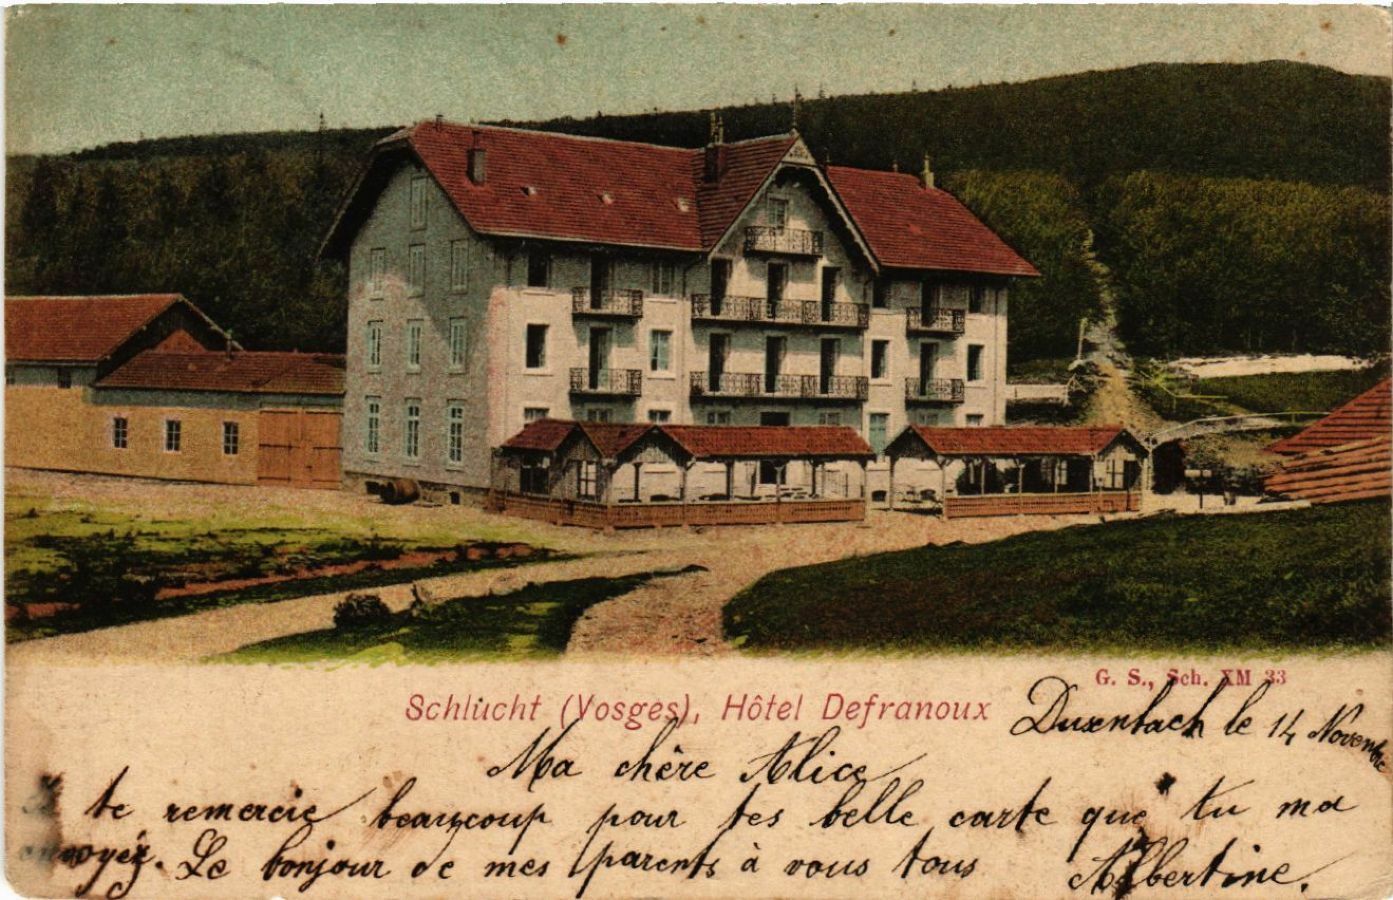 G. S., Sch. XM 33
Schlucht (Vosges), Hôtel Defranoux
Duxenbach le 14 Novembre
Ma chère Alice
te remercie beaucoup pour tes belle carte que tu ma
envoyéz. Le bonjour de mes parents à vous tous
Albertine.